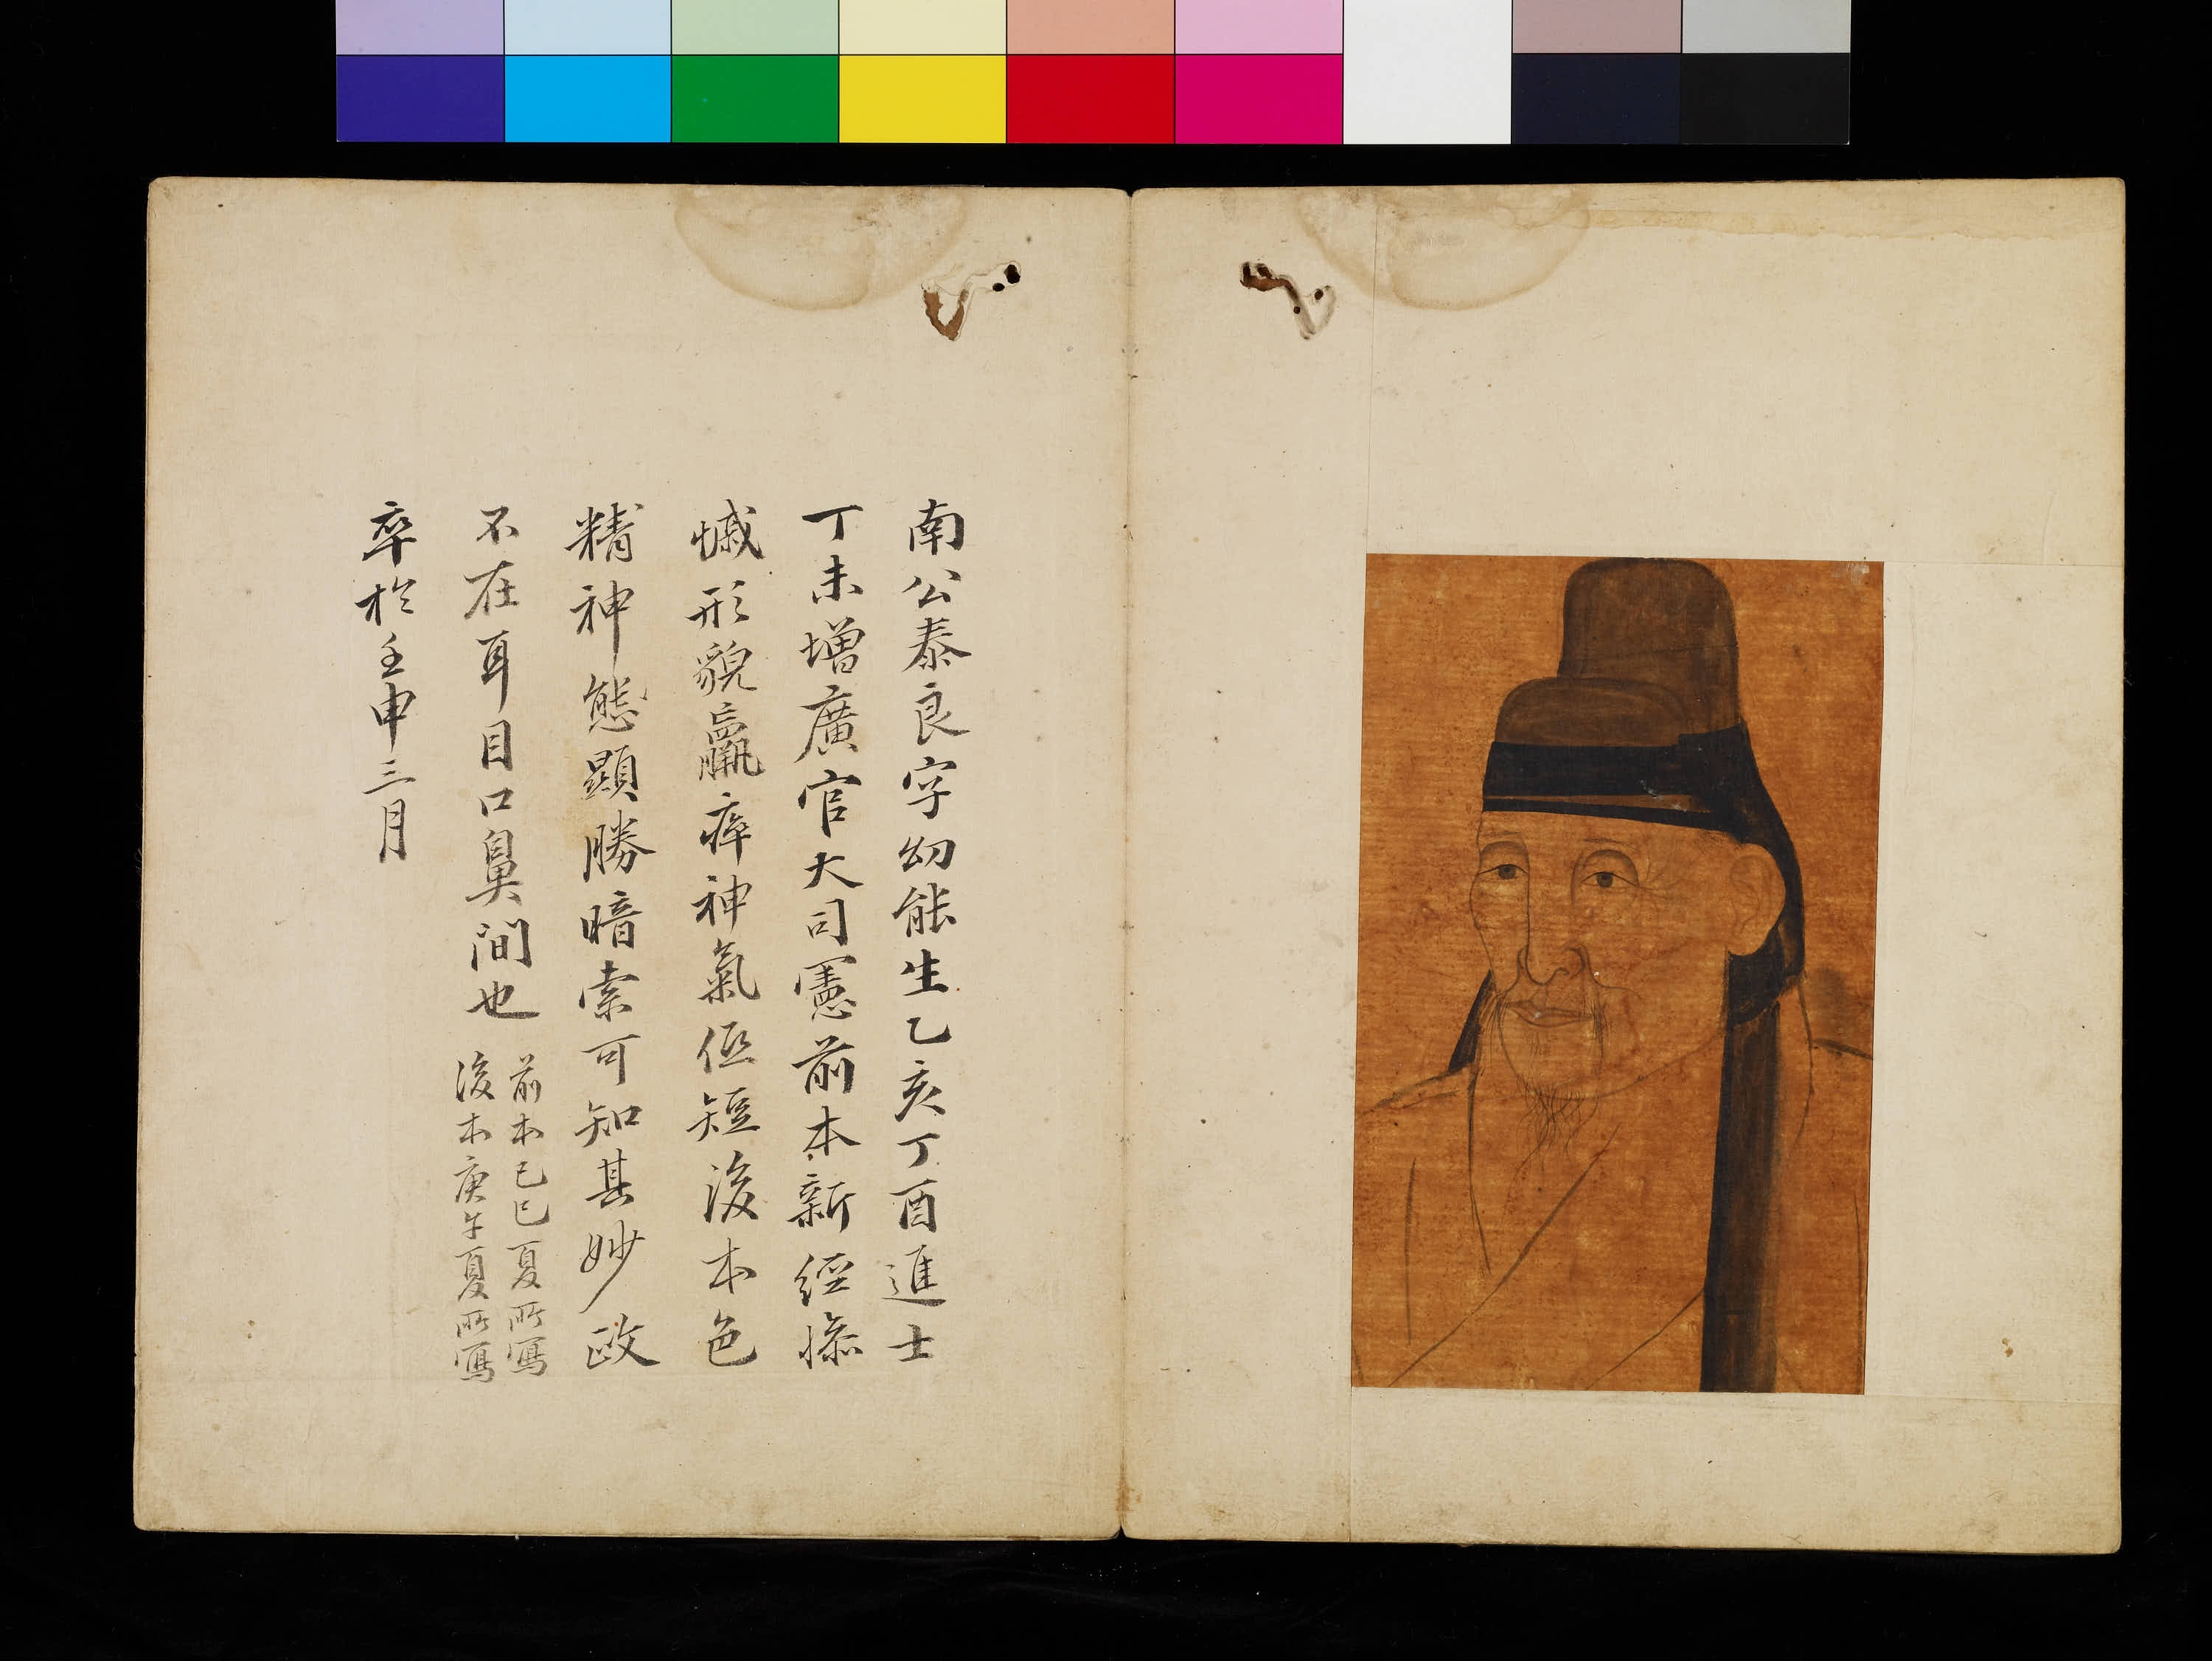 南公泰良字幼能生乙亥丁酉進士
丁未增廣官大司憲前本新經慘
慽形貌羸瘁神氣低短後本色
精神態顯勝暗索可知其妙政
不在耳目口鼻間也
前本己巳夏所寫
後本庚午夏所寫
卒於壬申三月